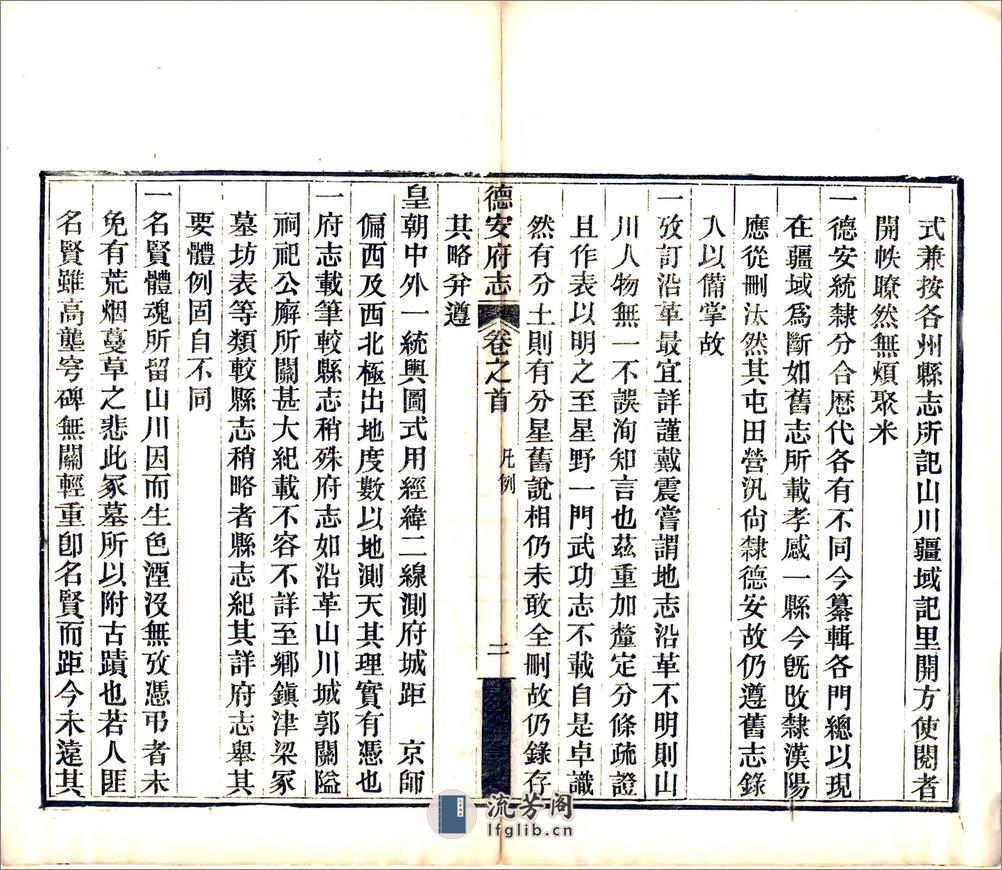 式兼按各州縣志所記山川疆域記里開方使閱者
開帙瞭然無煩聚米
一德安統隸分合歷代各有不同今纂輯各門總以現
在疆域爲斷如舊志所載孝感一縣今旣改隸漢陽
應從刪汰然其屯田營汛尙隸德安故仍遵舊志錄
入以備掌故
一攷訂沿革最宜詳謹戴震嘗謂地志沿革不明則山
川人物無一不誤洵知言也茲重加釐定分條疏證
且作表以明之至星野一門武功志不載自是卓識
然有分土則有分星舊說相仍未敢全刪故仍錄存
德安府志 卷之首 凡例 二
其略幷遵
皇朝中外一統輿圖式用經緯二線測府城距 京師
偏西及西北極出地度數以地測天其理實有憑也
一府志載筆較縣志稍殊府志如沿革山川城郭關隘
祠祀公廨所關甚大紀載不容不詳至鄉鎮津梁冢
墓坊表等類較縣志稍略者縣志紀其詳府志舉其
要體例固自不同
一名賢體魂所留山川因而生色湮沒無攷憑弔者未
免有荒烟蔓草之悲此冢墓所以附古蹟也若人匪
名賢雖高壟穹碑無關輕重卽名賢而距今未遠其
流芳阁
lfglib.cn